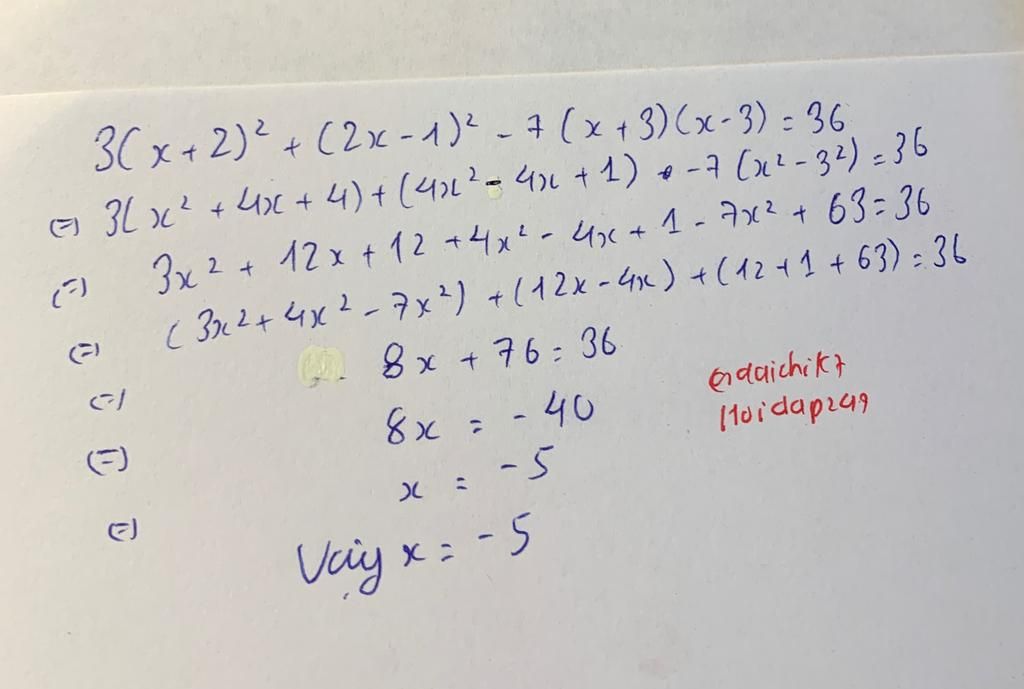 3(x+2)² + (2x-1)² - 7(x+3)(x-3) = 36
(=) 3(x² + 4x + 4) + (4x² - 4x + 1) - 7(x² - 3²) = 36
(=) 3x² + 12x + 12 + 4x² - 4x + 1 - 7x² + 63 = 36
(=) (3x² + 4x² - 7x²) + (12x - 4x) + (12 + 1 + 63) = 36
(=) 8x + 76 = 36
(=) 8x = -40
(=) x = -5
Vậy x = -5